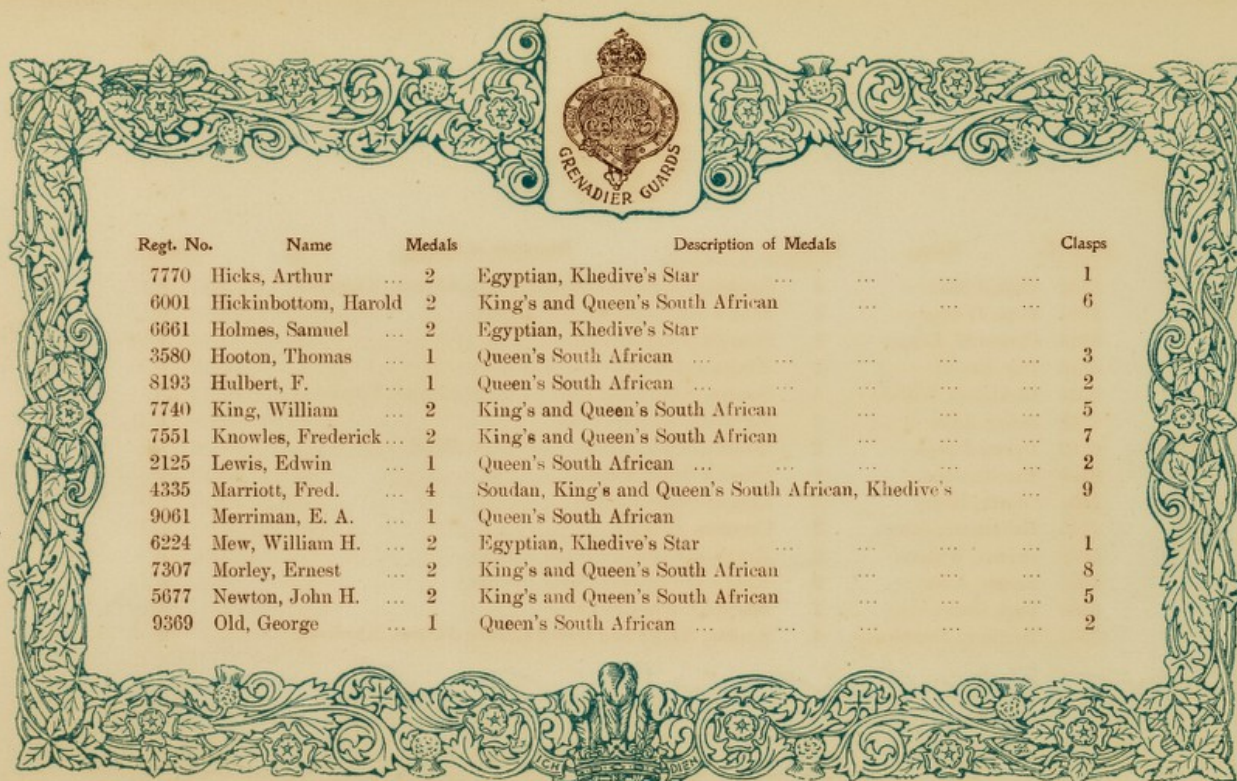 GRENADIER GUARDS
Regt. No. Name Medals Description of Medals Clasps
7770 Hicks, Arthur ... 2 Egyptian, Khedive's Star ... ... ... ... 1
6001 Hickinbottom, Harold 2 King's and Queen's South African ... ... ... 6
6661 Holmes, Samuel ... 2 Egyptian, Khedive's Star
3580 Hooton, Thomas ... 1 Queen's South African ... ... ... ... ... 3
8193 Hulbert, F. ... 1 Queen's South African ... ... ... ... ... 2
7740 King, William ... 2 King's and Queen's South African ... ... ... 5
7551 Knowles, Frederick ... 2 King's and Queen's South African ... ... ... 7
2125 Lewis, Edwin ... 1 Queen's South African ... ... ... ... ... 2
4335 Marriott, Fred. ... 4 Soudan, King's and Queen's South African, Khedive's ... 9
9061 Merriman, E. A. ... 1 Queen's South African
6224 Mew, William H. ... 2 Egyptian, Khedive's Star ... ... ... ... 1
7307 Morley, Ernest ... 2 King's and Queen's South African ... ... ... 8
5677 Newton, John H. ... 2 King's and Queen's South African ... ... ... 5
9369 Old, George ... 1 Queen's South African ... ... ... ... ... 2
DIEN